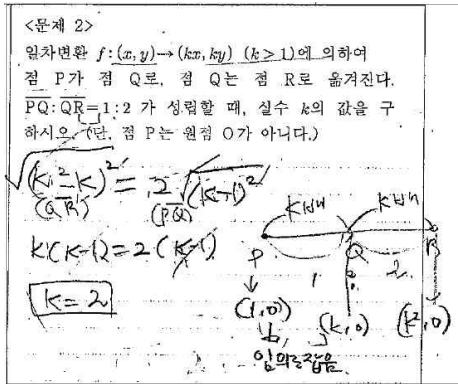 <문제 2>
일차변환 f:(x, y)→(kx, ky) (k>1)에 의하여
점 P가 점 Q로, 점 Q는 점 R로 옮겨진다.
PQ:QR=1:2 가 성립할 때, 실수 k의 값을 구
하시오. (단, 점 P는 원점 O가 아니다.)
√(k²-k)² = 2√(k-1)²
(QR) (PQ)
k(k-1)=2(k-1)
k=2
k배 k배
P Q R
1 2
(1,0) (k,0) (k²,0)
임의로잡음